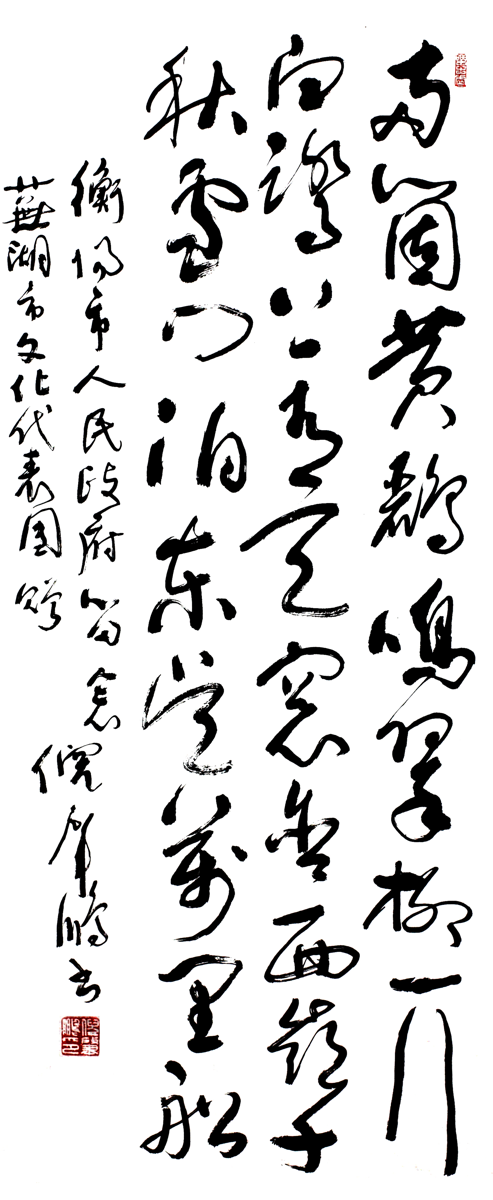 两箇黄鹂鸣翠柳一行
白鹭上青天窗含西嶺千
秋雪门泊东吴萬里船
衡阳市人民政府留念
蕪湖市文化代表团赠
倪鹏书